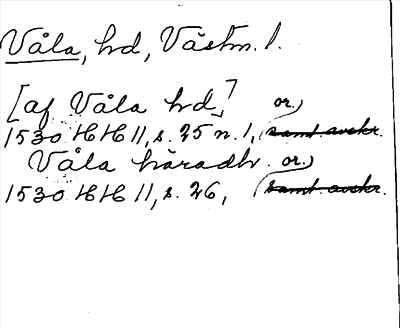 Våla, hd, Västm. l.
[af Våla hd,]
or.)
1530 HH II, s. 25 n. 1, (samt. avskr.
Våla häradh. or.)
1530 HH II, s. 26, (samt. avskr.